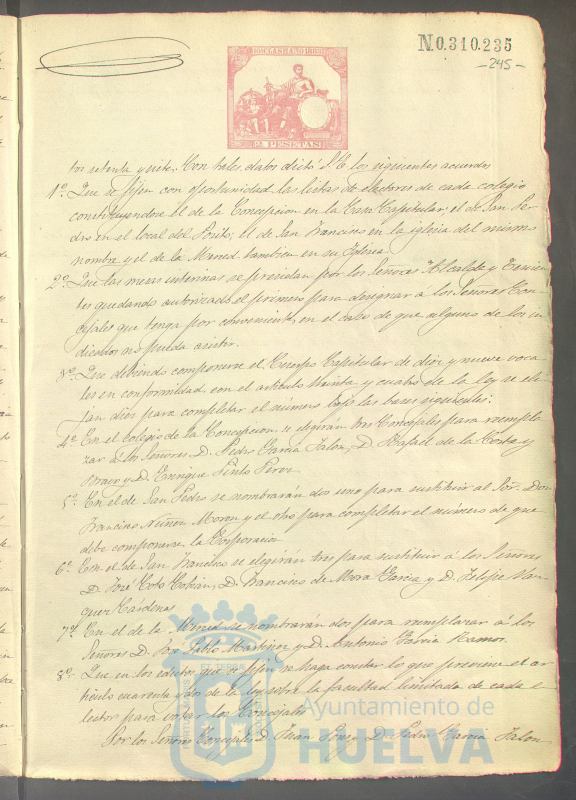 N.0.310.235
-245-
2 PESETAS
tos setenta y siete. Con tales datos dictó S.E. los siguientes acuerdos
1º. Que se fijen con oportunidad las listas de electores de cada colegio
constituyendose el de la Concepcion en la Casa Capitular, el de San Pe-
dro en el local del Posito; el de San Francisco en la iglesia del mismo
nombre y el de la Merced tambien en su Iglesia.
2º. Que las mesas interinas se presidan por los Señores Alcalde y Tenien-
tes quedando autorizado el primero para designar á los Señores Con-
cejales que tenga por conveniente, en el caso de que alguno de los in-
dicados no pueda asistir.
3º. Que debiendo componerse el Cuerpo Capitular de diez y nueve voca-
les en conformidad con el artículo treinta y cuatro de la ley se eli-
jan diez para completar el número bajo las bases siguientes:
4ª. En el colegio de la Concepcion, se elegirán tres Concejales para reempla-
zar á los Señores D. Pedro Garcia Jalon, D. Rafael de la Corte y
Bravo y D. Enrique Pinto Perez
5ª. En el de San Pedro se nombrarán dos uno para sustituir al Sor. Don
Francisco Nuñez Moron y el otro para completar el número de que
debe componerse la Corporacion
6ª. En el de San Francisco se elegirán tres para sustituir á los Señores
D. José Coto Cobian, D. Francisco de Mora Garcia y D. Felipe Vaz-
quez Cárdenas
7ª. En el de la Merced se nombrarán dos para reemplazar á los
Señores D. Pablo Martinez y D. Antonio Garcia Ramos.
8º. Que en los edictos que se fijen se haga constar lo que previene el ar-
tículo cuarenta y dos de la ley sobre la facultad limitada de cada e-
lector para votar los Concejales
Por los Señores Concejales D. Juan D. Pedro Garcia Jalon
Ayuntamiento de
HUELVA